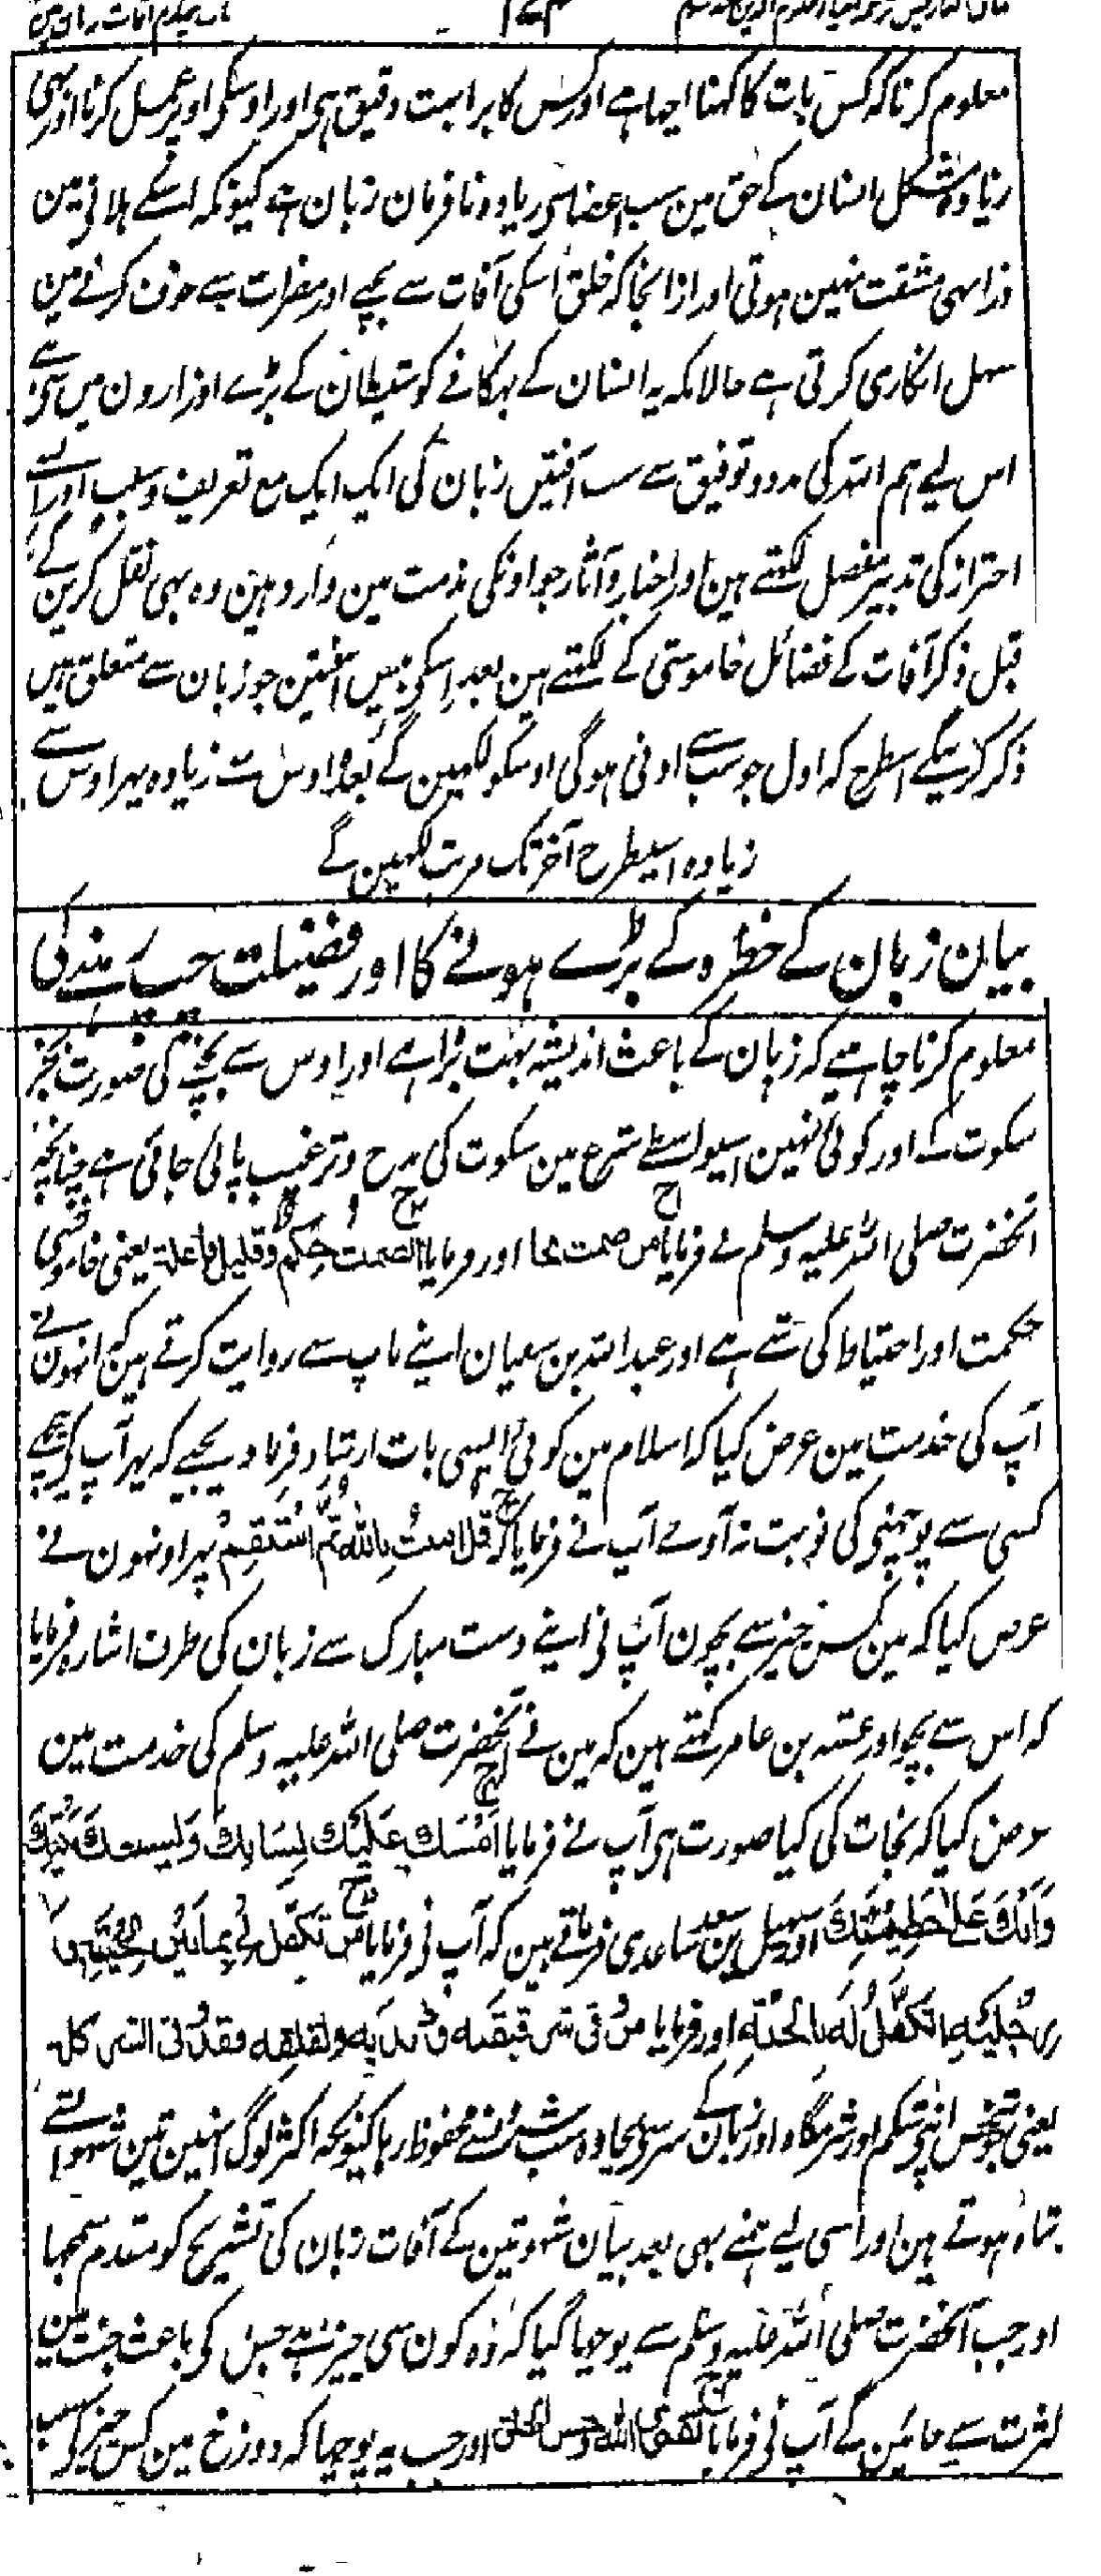 معلوم کرنا کہ کس بات کا کہنا اچھا ہے اور کس کا برا بہت دقیق ہی اور اوسکی اوپر عمل کرنا اور بھی
زیادہ مشکل انسان کے حق مین سب اعضا سی زیادہ نافرمان زبان ہے کیونکہ اسکے ہلانے مین
ذرا سہی مشقت نہین ہوتی اور ازانجا کہ خلق اسکی آفات سے بچنے اور مضرات سے خوف کرنے مین
سہل انکاری کرتی ہے حالانکہ یہ انسان کے بہکانے کو شیطان کے بڑے اوزارون میں سے
اس لیے ہم اللہ کی مدد و توفیق سے سب آفتیں زبان کی ایک ایک مع تعریف و سبب اور اسے
احتراز کی تدبیر مفصل لکھتے ہین اور اخبار و آثار جو اونکی مذمت مین وارد ہین وہ بھی نقل کرین گے
قبل ذکر آفات کے فضائل خاموشی کے لکھتے ہین بعد اسکی بیس آفتین جو زبان سے متعلق ہیں
ذکر کرینگے اسطرح کہ اول جو سب سے ادنی ہوگی اوسکو لکھین گے بعد اوس سے زیادہ پہر اوس سے
زیادہ اسیطرح آخر تک مرتب لکھین گے
بیان زبان کے خطرہ کے بڑے ہونے کا اور فضیلت چپ رہنے کی
معلوم کرنا چاہیے کہ زبان کے باعث اندیشہ بہت بڑا ہے اور اوس سے بچنے کی صورت بجز
سکوت کے اور کوئی نہین اسیواسطے شرع مین سکوت کی مدح و ترغیب پائی جاتی ہے چنانچہ
آنحضرت صلی اللہ علیہ وسلم نے فرمایا من صمت نجا اور فرمایا الصمت حکم وقلیل فاعلہ یعنی خاموشی
حکمت اور احتیاط کی شے ہے اور عبداللہ بن سفیان اپنے باپ سے روایت کرتے ہین کہ انہون نے
آپ کی خدمت مین عرض کیا کہ اسلام مین کوئی ایسی بات ارشاد فرما دیجیے کہ پہر آپ کے پیچھے
کسی سے پوچھنی کی نوبت نہ آوے آپ نے فرمایا کہ قل امنت باللہ ثم استقم پہر اونہون نے
عرض کیا کہ مین کس چیز سے بچون آپ نی اپنے دست مبارک سے زبان کی طرف اشارہ فرمایا
کہ اس سے بچ اور عقبہ بن عامر کہتے ہین کہ مین نے آنحضرت صلی اللہ علیہ وسلم کی خدمت مین
عرض کیا کہ نجات کی کیا صورت ہی آپ نے فرمایا امسک علیک لسانک ولیسعک بیتک
وابک علی خطیئتک اور سہل بن سعد ساعدی فرماتے ہین کہ آپ نی فرمایا من تکفل لی بما بین لحییہ و
رجلیہ اتکفل لہ بالجنۃ اور فرمایا من وقی شر قبقبہ وذبذبہ ولقلقہ فقد وقی الشر کلہ
یعنی جو شخص اپنی شکم اور شرمگاہ اور زبان کے شر سی بچا وہ سب شر سے محفوظ رہا کیونکہ اکثر لوگ انہین تین شہوات سے
تباہ ہوتے ہین اور اسی لیے ہمنے بھی بعد بیان شہوتین کے آفات زبان کی تشریح کو مقدم سمجہا
اور جب آنحضرت صلی اللہ علیہ وسلم سے پوچھا گیا کہ وہ کون سی چیز ہے جس کی باعث جنت مین
کثرت سے جائین گے آپ نی فرمایا تقوی اللہ وحسن الخلق اور جب یہ پوچھا کہ دوزخ مین کس چیز کے سبب